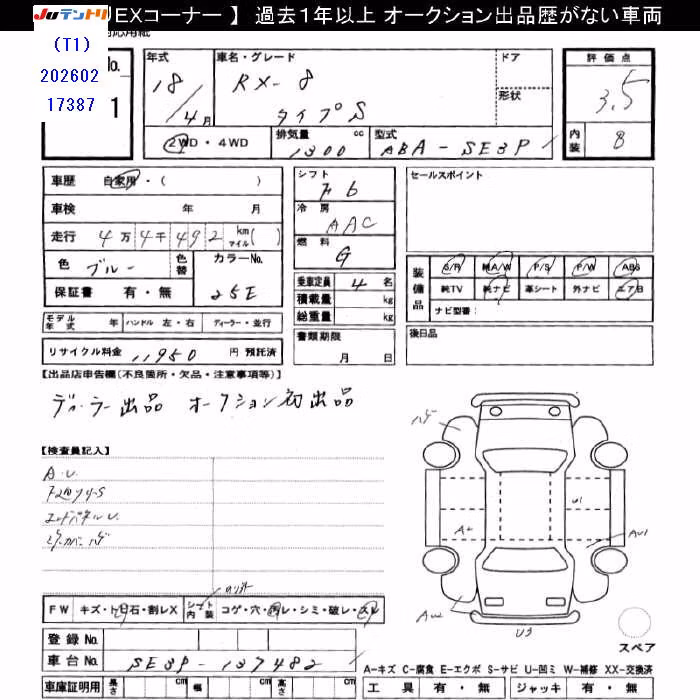 JUテントリ EXコーナー 】 過去1年以上 オークション出品歴がない車両
(T1)
202602
17387
No.
1
年式
18
4月
車名・グレード
RX-8
タイプS
ドア
形状
評価点
3.5
内装
8
2WD・4WD
排気量 cc
1300
型式
ABA-SE3P
車歴 自家用・( )
車検 年 月
走行 4万4千492 km マイル( )
色 ブルー
色替
カラーNo.
25E
保証書 有・無
シフト
F6
冷房
AAC
燃料
G
乗車定員 4 名
積載量 kg
総重量 kg
書類期限
月 日
セールスポイント
装備品
S/R 純A/W P/S P/W ABS
純TV 純ナビ 革シート 外ナビ エアB
ナビ型番:
後日品
モデル年式 年 ハンドル 左・右 ディーラー・並行
リサイクル料金 11950 円 預託済
【出品店申告欄(不良箇所・欠品・注意事項等)】
ディーラー出品 オークション初出品
【検査員記入】
A.U.
FW キズ・ト・石・割レX シート内装 コゲ・穴・切レ・シミ・破レ・スレ
登録No.
車台No. SE3P-137482
車庫証明用 長さ cm 幅 cm 高さ cm
ハゲ
U1
A2
AU1
AU2
U3
スペア
A-キズ C-腐食 E-エクボ S-サビ U-凹ミ W-補修 XX-交換済
工具 有・無 ジャッキ 有・無